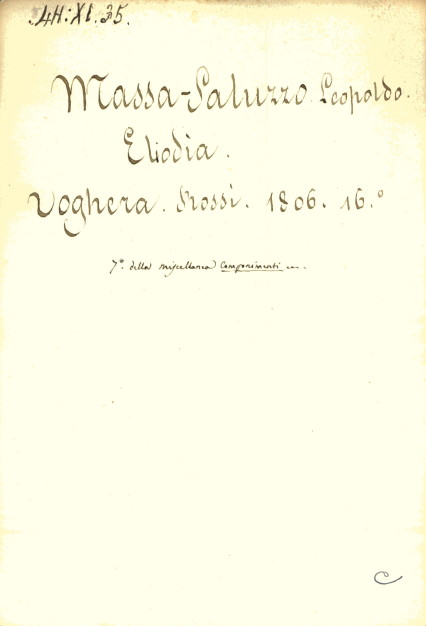 4H:XI.35.
Massa-Saluzzo. Leopoldo.
Eliodia.
Voghera. Rossi. 1806. 16.º
7º. della miscellanea Componimenti ....
C